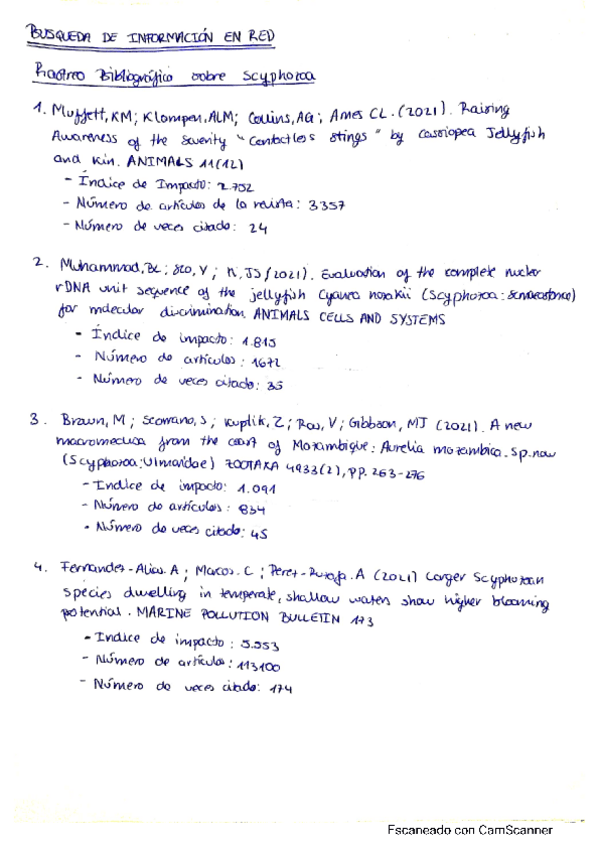 BUSQUEDA DE INFORMACIÓN EN RED
Rastreo Bibliográfico sobre Scyphozoa
1. Muffett, KM; Klompen, ALM; Collins, AG; Ames CL. (2021). Raising
Awareness of the Severity "Contactless stings" by Cassiopea Jellyfish
and Kin. ANIMALS 11(12)
- Índice de Impacto: 2.752
- Número de artículos de la revista: 3357
- Número de veces citado: 24
2. Muhammad, BL; Seo, Y; K, JS (2021). Evaluation of the complete nuclear
rDNA unit sequence of the jellyfish Cyanea nozakii (Scyphozoa:
for molecular discrimination. ANIMALS CELLS AND SYSTEMS
- Índice de impacto: 1.815
- Número de artículos: 1672
- Número de veces citado: 35
3. Brown, M; Scorrano, S; Kuplik, Z; Ras, V; Gibbson, MJ (2021). A new
macromedusa from the coast of Mozambique: Aurelia mozambica. Sp. nov
(Scyphozoa: Ulmaridae) ZOOTAXA 4933(2), PP. 263-276
- Indice de impacto: 1.091
- Número de artículos: 834
- Número de veces citado: 45
4. Fernandez-Alias. A; Marcos. C; Perez-Ruzafa. A (2021) Larger Scyphozoan
Species dwelling in temperate, shallow waters show higher blooming
potential. MARINE POLLUTION BULLETIN 173
- Indice de impacto: 5.553
- Número de artículos: 113100
- Número de veces citado: 174
Escaneado con CamScanner